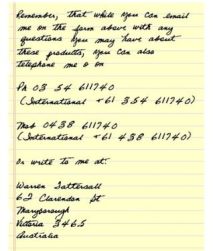 Remember, that while you can email
me on the form above with any
questions you may have about
these products, you can also
telephone me on
Ph 03 54 611740
(International +61 354 611740)
Mob 0438 611740
(International +61 438 611740)
Or write to me at:
Warren Tattersall
62 Clarendon St
Maryborough
Victoria 3465
Australia